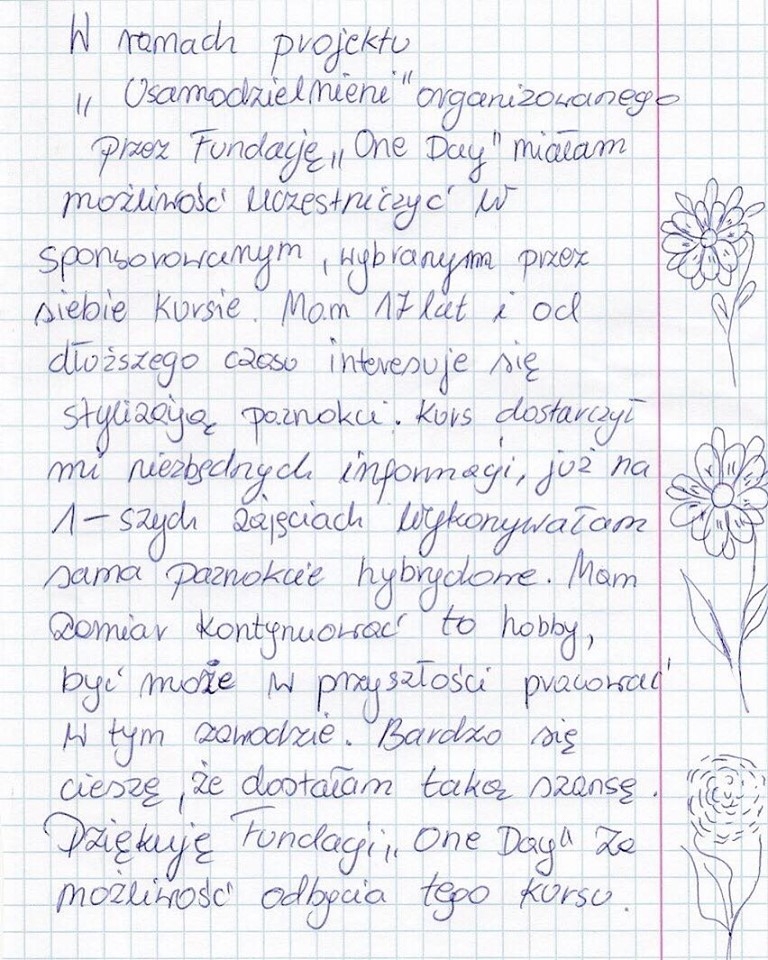 W ramach projektu
„Usamodzielnieni" organizowanego
przez Fundację „One Day" miałam
możliwość uczestniczyć w
sponsorowanym, wybranym przez
siebie kursie. Mam 17 lat i od
dłuższego czasu interesuje się
stylizacją paznokci. Kurs dostarczył
mi niezbędnych informacji, już na
1-szych zajęciach wykonywałam
sama paznokcie hybrydowe. Mam
zamiar kontynuować to hobby,
być może w przyszłości pracować
w tym zawodzie. Bardzo się
cieszę, że dostałam taką szansę.
Dziękuję Fundacji „One Day" za
możliwość odbycia tego kursu.